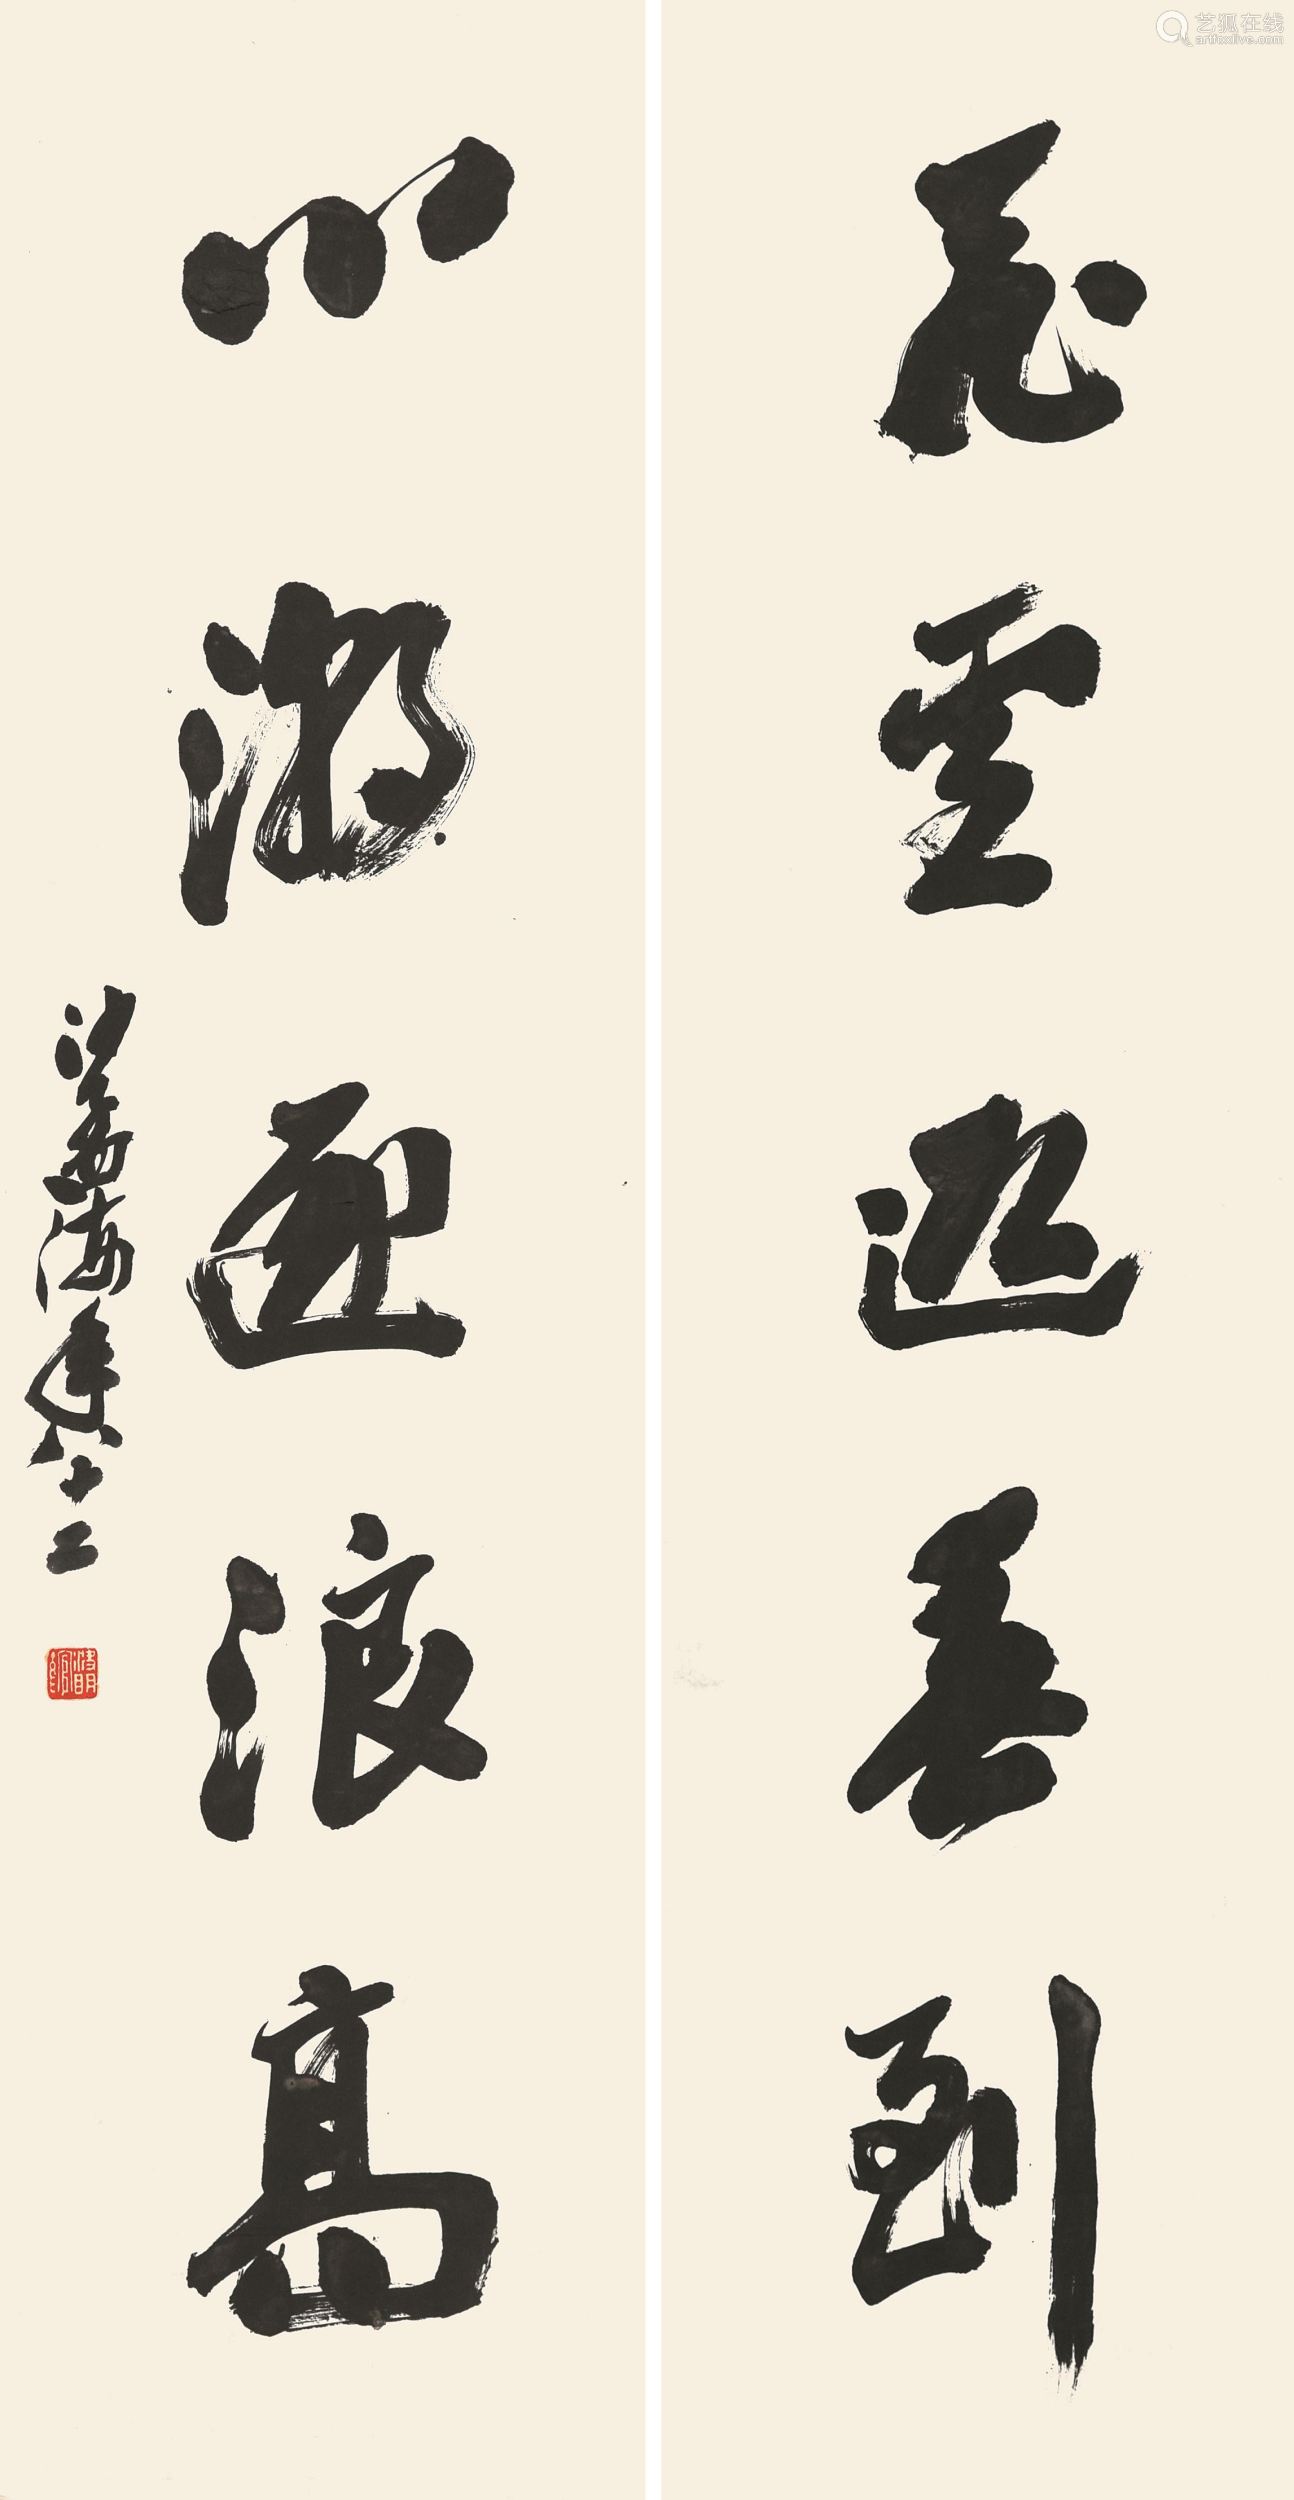 艺狐在线
artfoxlive.com
飞雪迎春到
心潮逐浪高
沙孟海年八十二